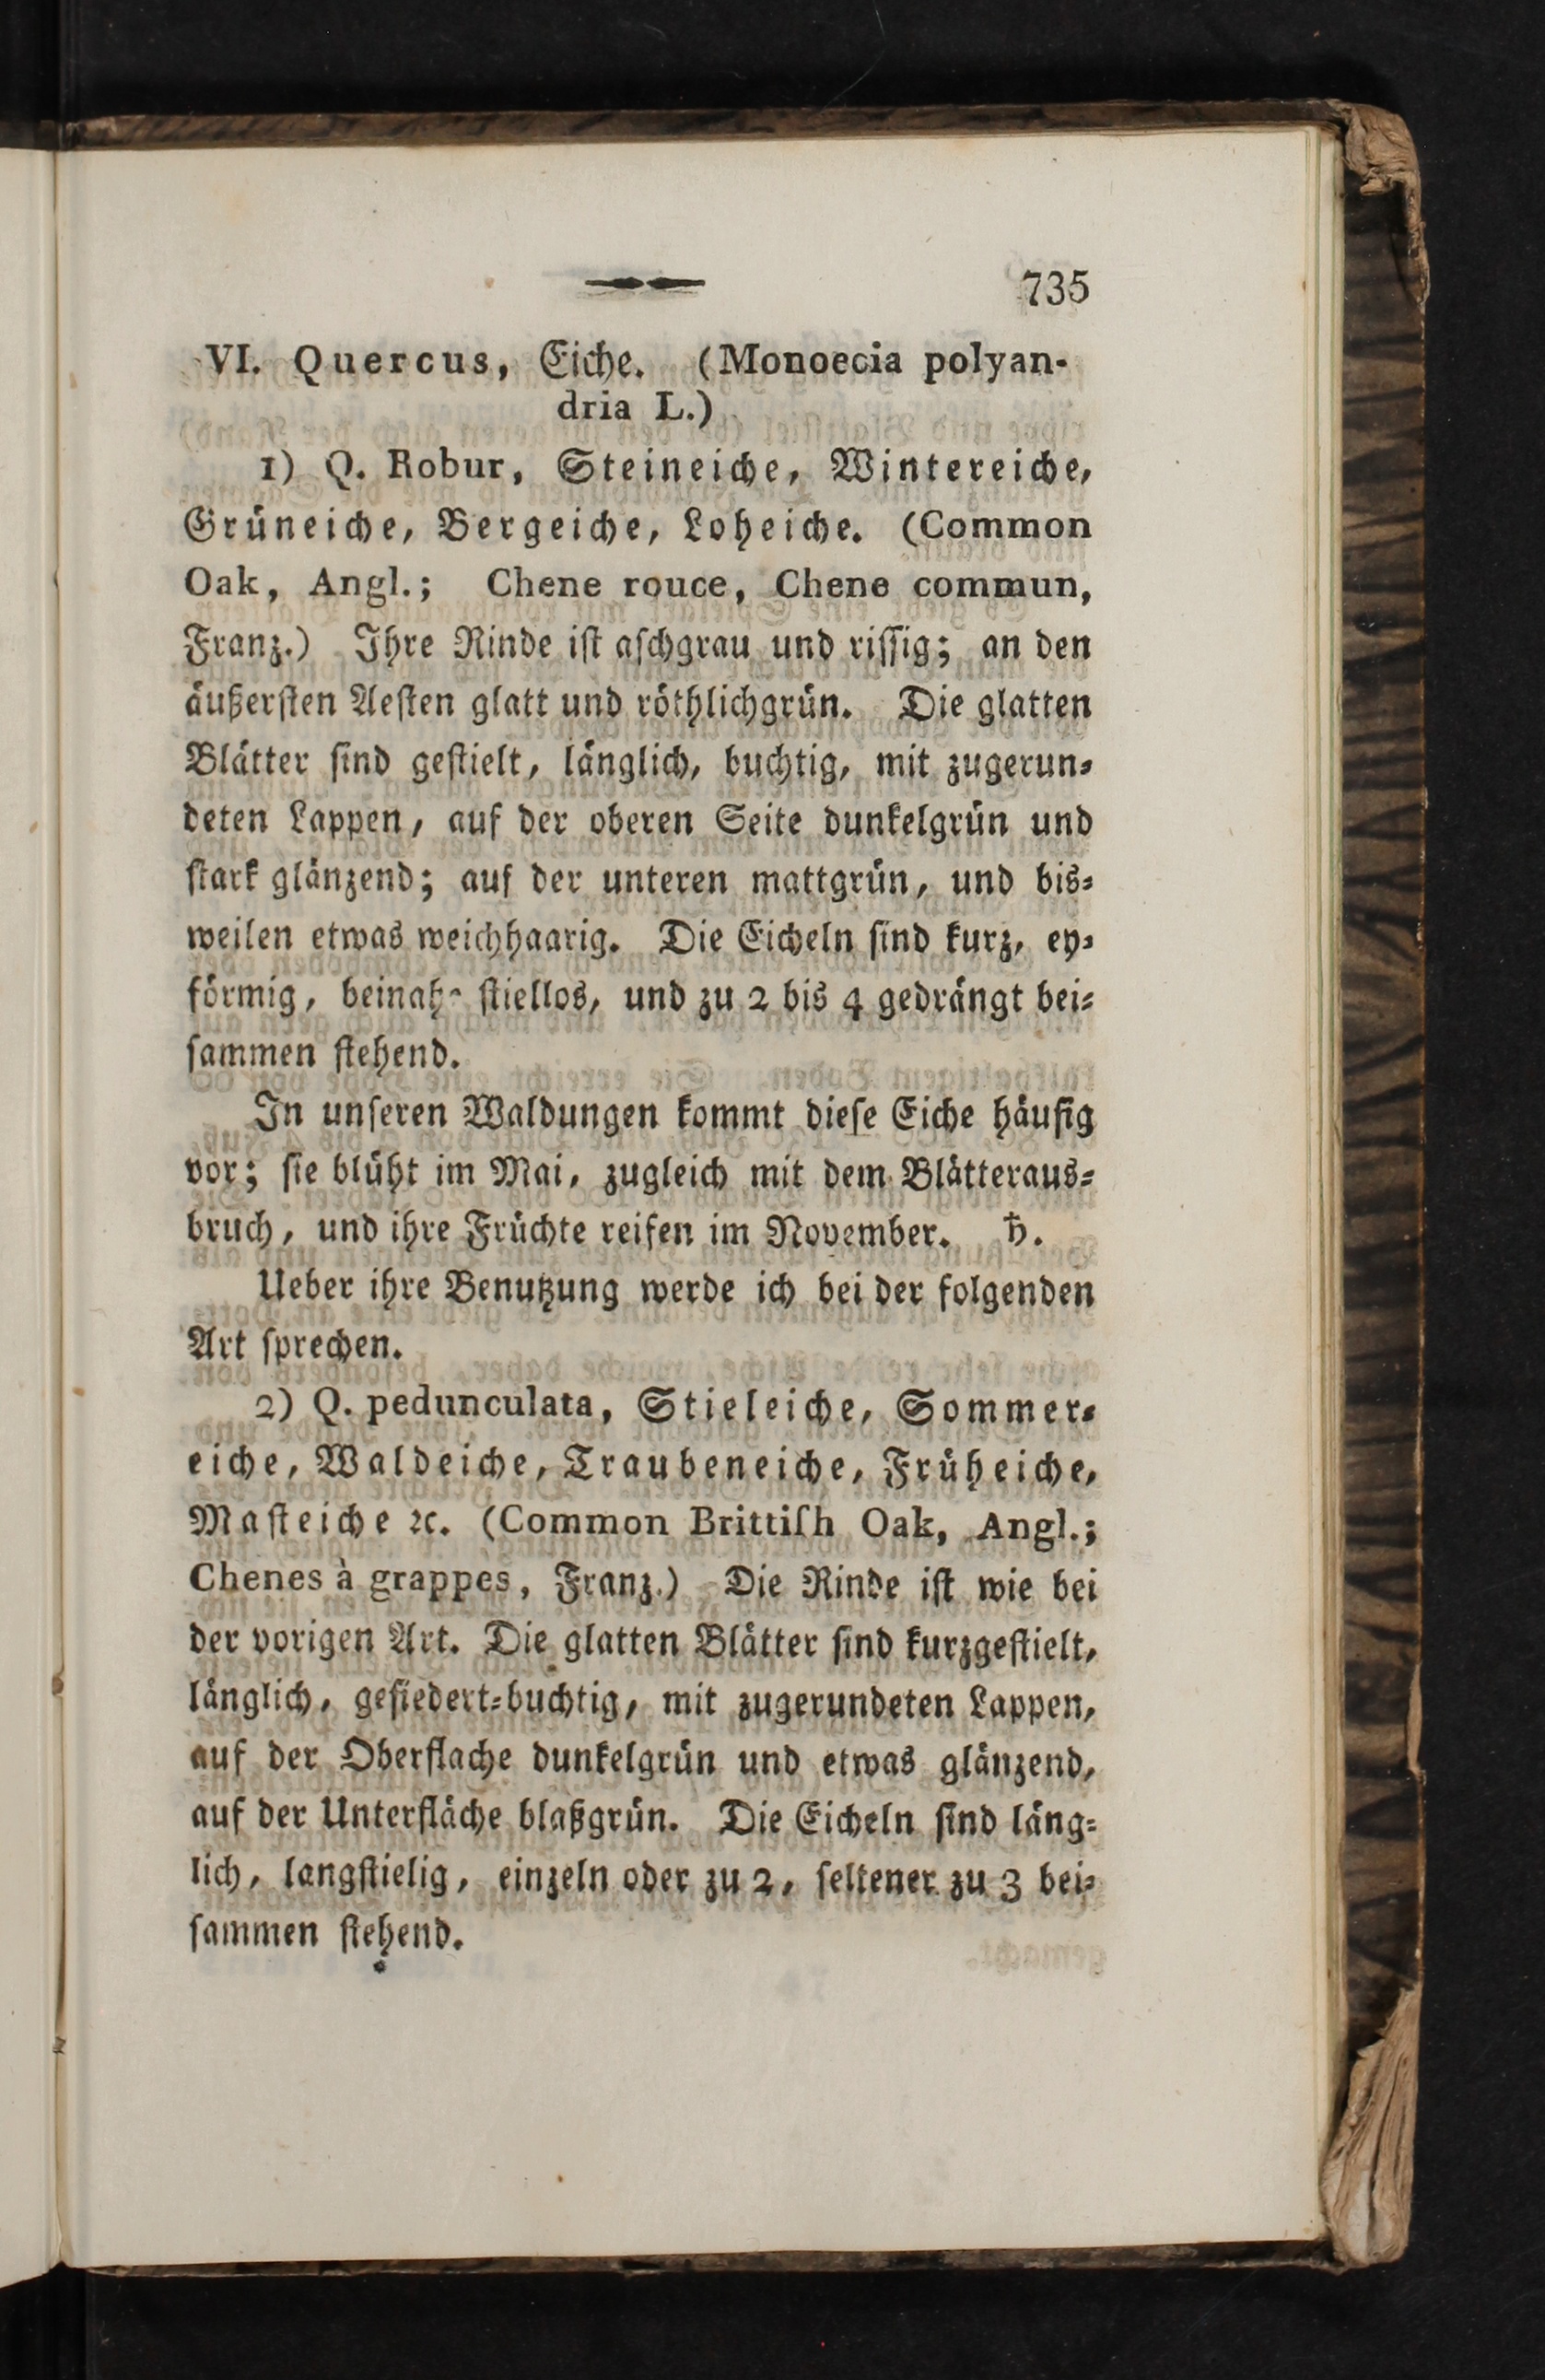 735
VI. Quercus, Eiche. (Monoecia polyan-
dria L.)
1) Q. Robur, Steineiche, Wintereiche,
Grüneiche, Bergeiche, Loheiche. (Common
Oak, Angl.; Chene rouce, Chene commun,
Franz.) Ihre Rinde iſt aſchgrau und riſſig; an den
äußerſten Aeſten glatt und röthlichgrün. Die glatten
Blätter ſind geſtielt, länglich, buchtig, mit zugerun⸗
deten Lappen, auf der oberen Seite dunkelgrün und
ſtark glänzend; auf der unteren mattgrün, und bis⸗
weilen etwas weichhaarig. Die Eicheln ſind kurz, ey⸗
förmig, beinahe ſtiellos, und zu 2 bis 4 gedrängt bei⸗
ſammen ſtehend.
In unſeren Waldungen kommt dieſe Eiche häufig
vor; ſie blüht im Mai, zugleich mit dem Blätteraus⸗
bruch, und ihre Früchte reifen im November. ♄.
Ueber ihre Benutzung werde ich bei der folgenden
Art ſprechen.
2) Q. pedunculata, Stieleiche, Sommer⸗
eiche, Waldeiche, Traubeneiche, Früheiche,
Maſteiche ꝛc. (Common Brittiſh Oak, Angl.;
Chenes à grappes, Franz.) Die Rinde iſt wie bei
der vorigen Art. Die glatten Blätter ſind kurzgeſtielt,
länglich, gefiedert⸗buchtig, mit zugerundeten Lappen,
auf der Oberflache dunkelgrün und etwas glänzend,
auf der Unterfläche blaßgrün. Die Eicheln ſind läng⸗
lich, langſtielig, einzeln oder zu 2, ſeltener zu 3 bei⸗
ſammen ſtehend.